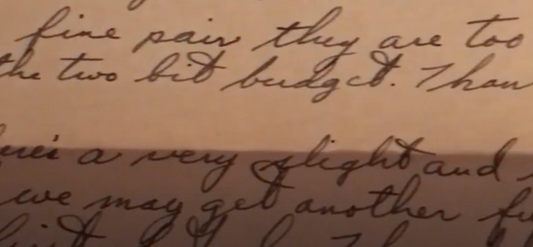 fine pair they are too
the two bit budget. Than
a very slight and
we may get another fu